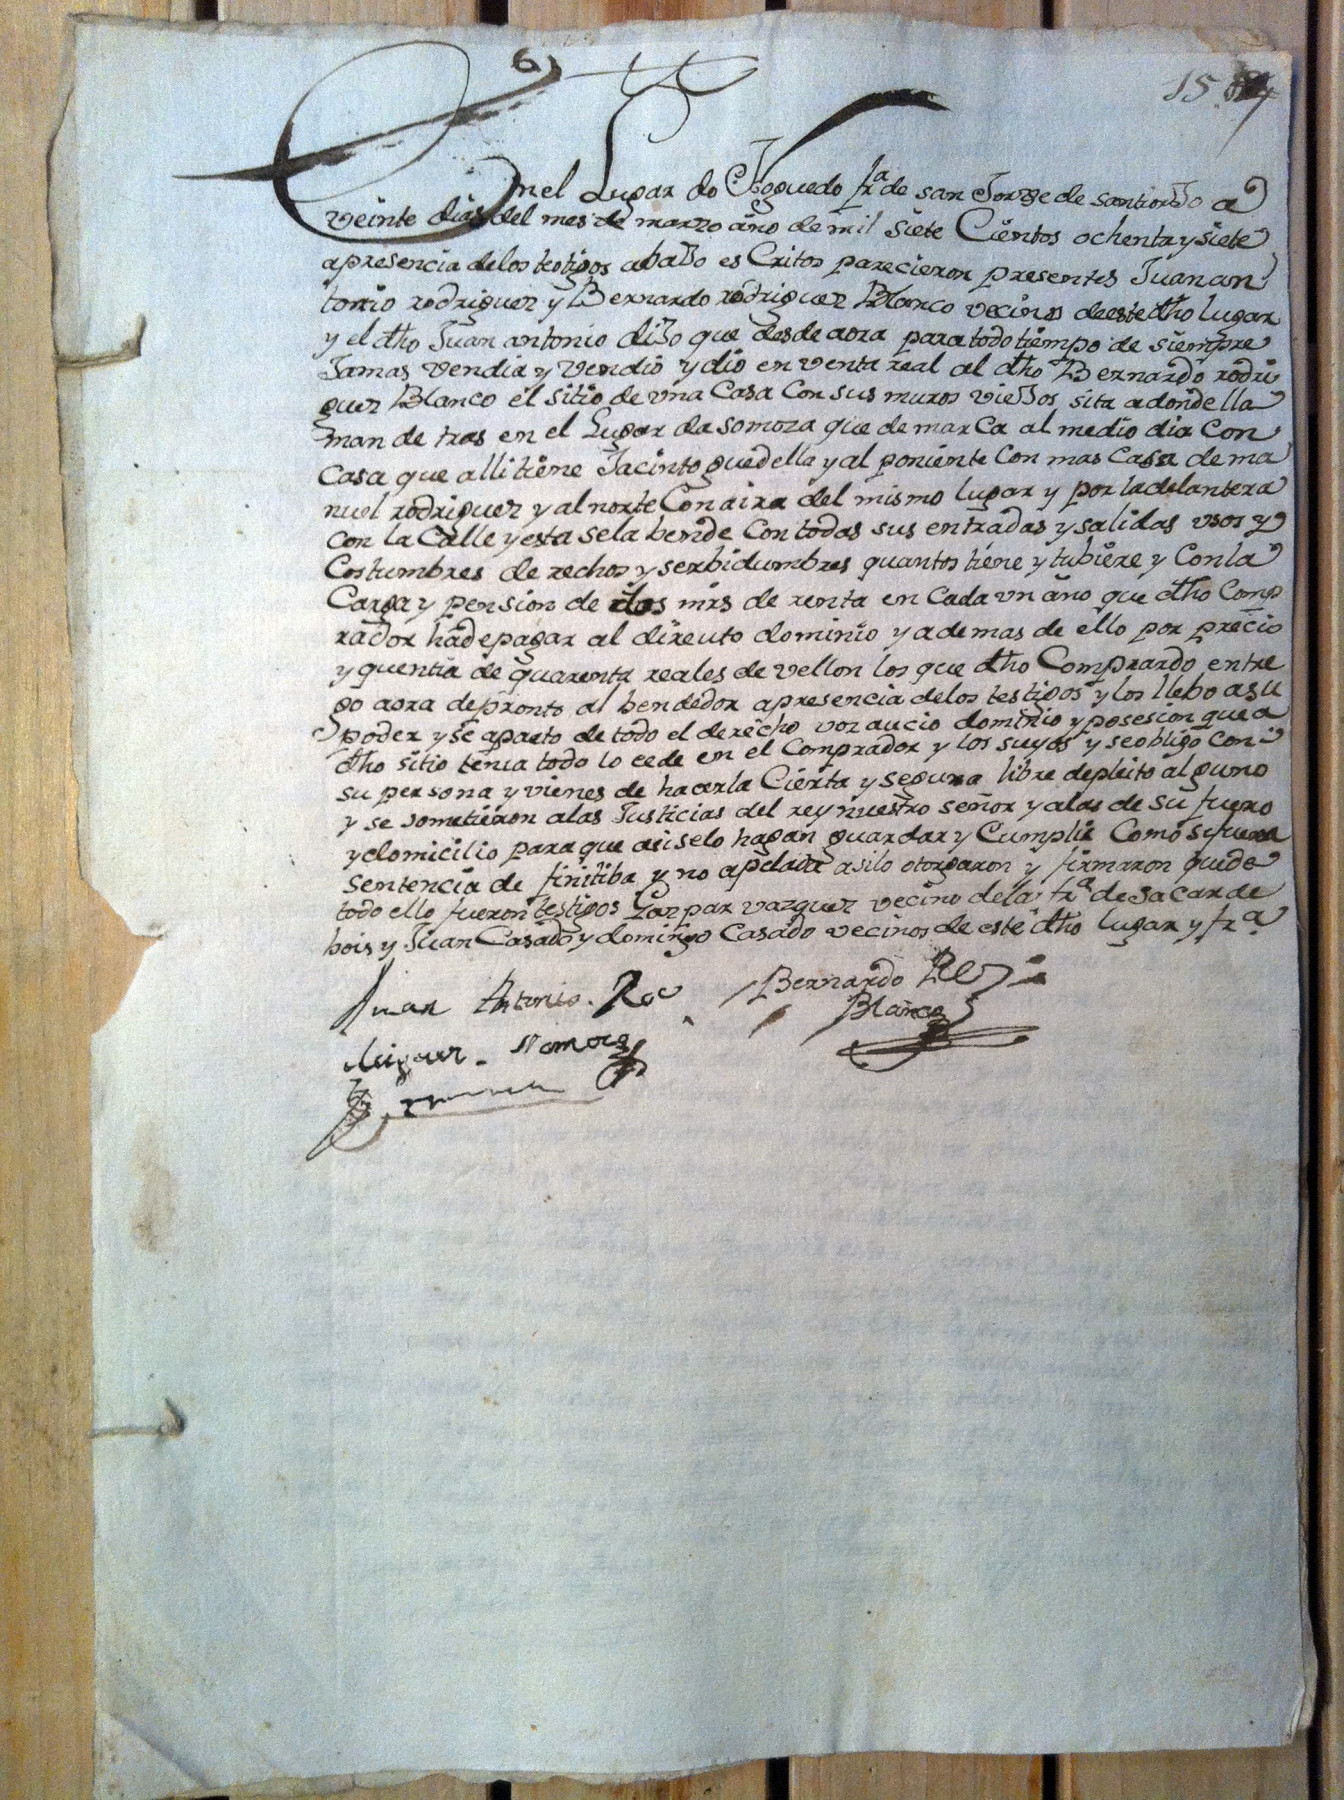 6)
15
En el Lugar do foguedo fra de san Jorge de santiorjo a
veinte dias del mes de marzo año de mil siete Cientos ochenta y siete
a presencia de los testigos abajo es Critos parecieron presentes Juan an
tonio rodriguez y Bernardo rodriguez Blanco vecinos de este dho lugar
y el dho Juan antonio dijo que desde aora para todo tiempo de siempre
Jamas vendia y vendio y dio en venta real al dho Bernardo rodri
guez Blanco el sitio de vna Casa Con sus muros viejos sita a donde lla
man de tras en el Lugar da somoza que de marCa al medio dia Con
Casa que alli tiene Jacinto guedella y al poniente Con mas Casa de ma
nuel rodriguez y al norte Con aira del mismo lugar y por la delantera
con la Calle y esta se la bende Con todas sus entradas y salidas vsos y
Costumbres de rechos y serbidumbres quantos tiene y tubiere y Con la
Carga y pension de dos mrs de renta en Cada vn año que dho Comp
rador ha de pagar al direuto dominio y a de mas de ello por precio
y quentia de quarenta reales de vellon los que dho Comprardo entre
go aora de pronto al bendedor a presencia de los testigos y los llebo a su
poder y se aparto de todo el derecho voz aucio dominio y posesion que a
dho sitio tenia todo lo cede en el Comprador y los suyos y se obligo Con
su persona y vienes de hacerla Cierta y segura libre de pleito alguno
y se sometieron a las Justicias del rey nuestro señor y a las de su fuero
y domicilio para que asi se lo hagan guardar y Cumplir Como si fuera
sentencia de finitiba y no apelada asi lo otorgaron y firmaron que de
todo ello fueron testigos Gaspar vazquez vecino de la fra de sacarde
bois y Juan Casado y domingo Casado vecinos de este dho lugar y fra
Juan Antonio Roc Bernardo
Blanco
Miguel Somoza